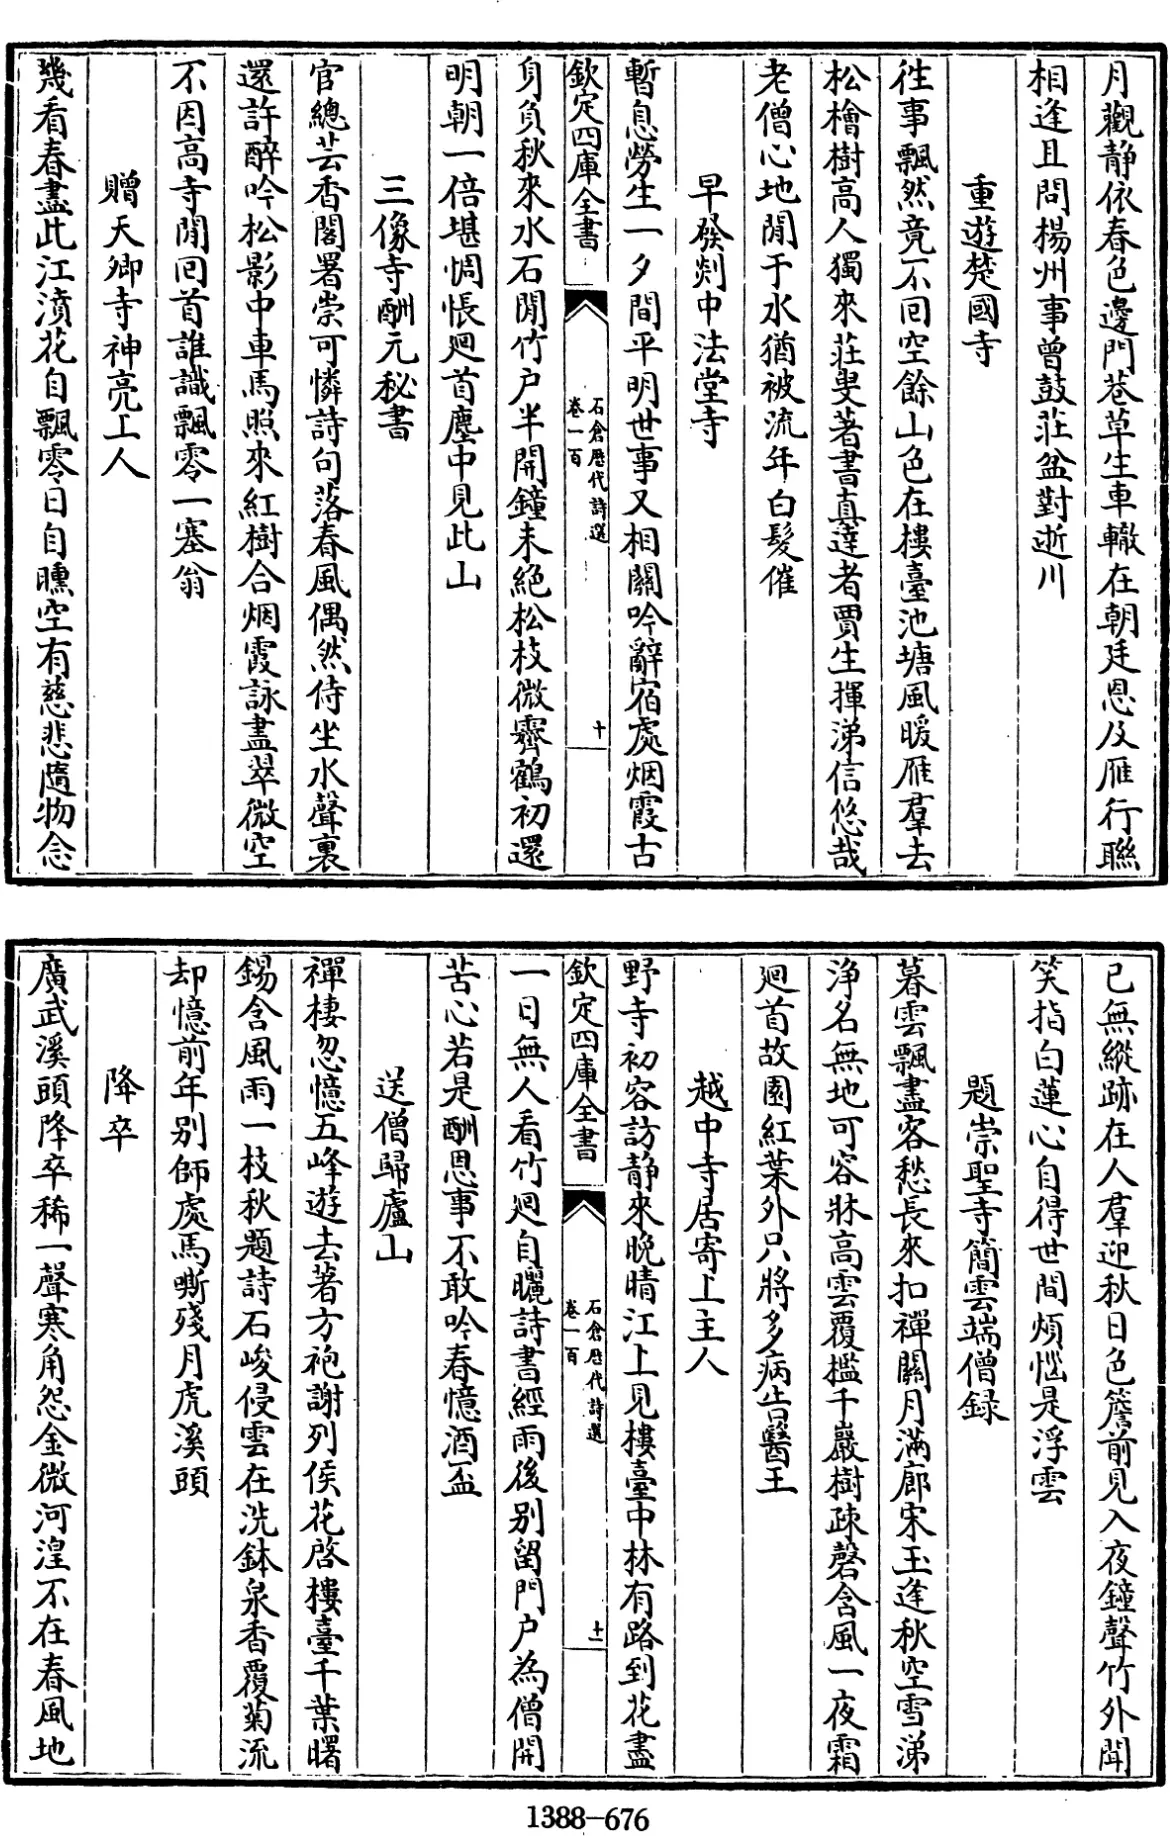 月觀靜依春色邊門巷草生車轍在朝廷恩及雁行聯
相逢且問楊州事曾鼓莊盆對逝川
重遊楚國寺
徃事飄然竟不囘空餘山色在樓臺池塘風暖雁羣去
松檜樹高人獨來莊叟著書真達者賈生揮涕信悠哉
老僧心地閒于水猶被流年白髮催
早發剡中法堂寺
暫息勞生一夕間平明世事又相關吟辭宿處烟霞古
欽定四庫全書
石倉歷代詩選
卷一百
十
身負秋來水石閒竹户半開鐘未絶松枝微霽鶴初還
明朝一倍堪惆悵廻首塵中見此山
三像寺酬元秘書
官總芸香閣署崇可憐詩句落春風偶然侍坐水聲裏
還許醉吟松影中車馬照來紅樹合烟霞詠盡翠微空
不因高寺閒囘首誰識飄零一塞翁
贈天卿寺神亮上人
幾看春盡此江濆花自飄零日自曛空有慈悲隨物念
已無縱跡在人羣迎秋日色簷前見入夜鐘聲竹外聞
笑指白蓮心自得世間煩惱是浮雲
題崇聖寺簡雲端僧録
暮雲飄盡客愁長來扣禪關月滿廊宋玉逢秋空雪涕
浄名無地可容牀高雲覆檻千巖樹疎磬含風一夜霜
廻首故園紅葉外只將多病告醫王
越中寺居寄上主人
野寺初容訪靜來晚晴江上見樓臺中林有路到花盡
欽定四庫全書
石倉歷代詩選
卷一百
十一
一日無人看竹廻自曬詩書經雨後别留門户為僧開
苦心若是酬恩事不敢吟春憶酒盃
送僧歸廬山
禪棲忽憶五峰遊去著方袍謝列侯花啓樓臺千葉曙
錫含風雨一枝秋題詩石峻侵雲在洗鉢泉香覆菊流
却憶前年别師處馬嘶殘月虎溪頭
降卒
廣武溪頭降卒稀一聲寒角怨金微河湟不在春風地
1388-676